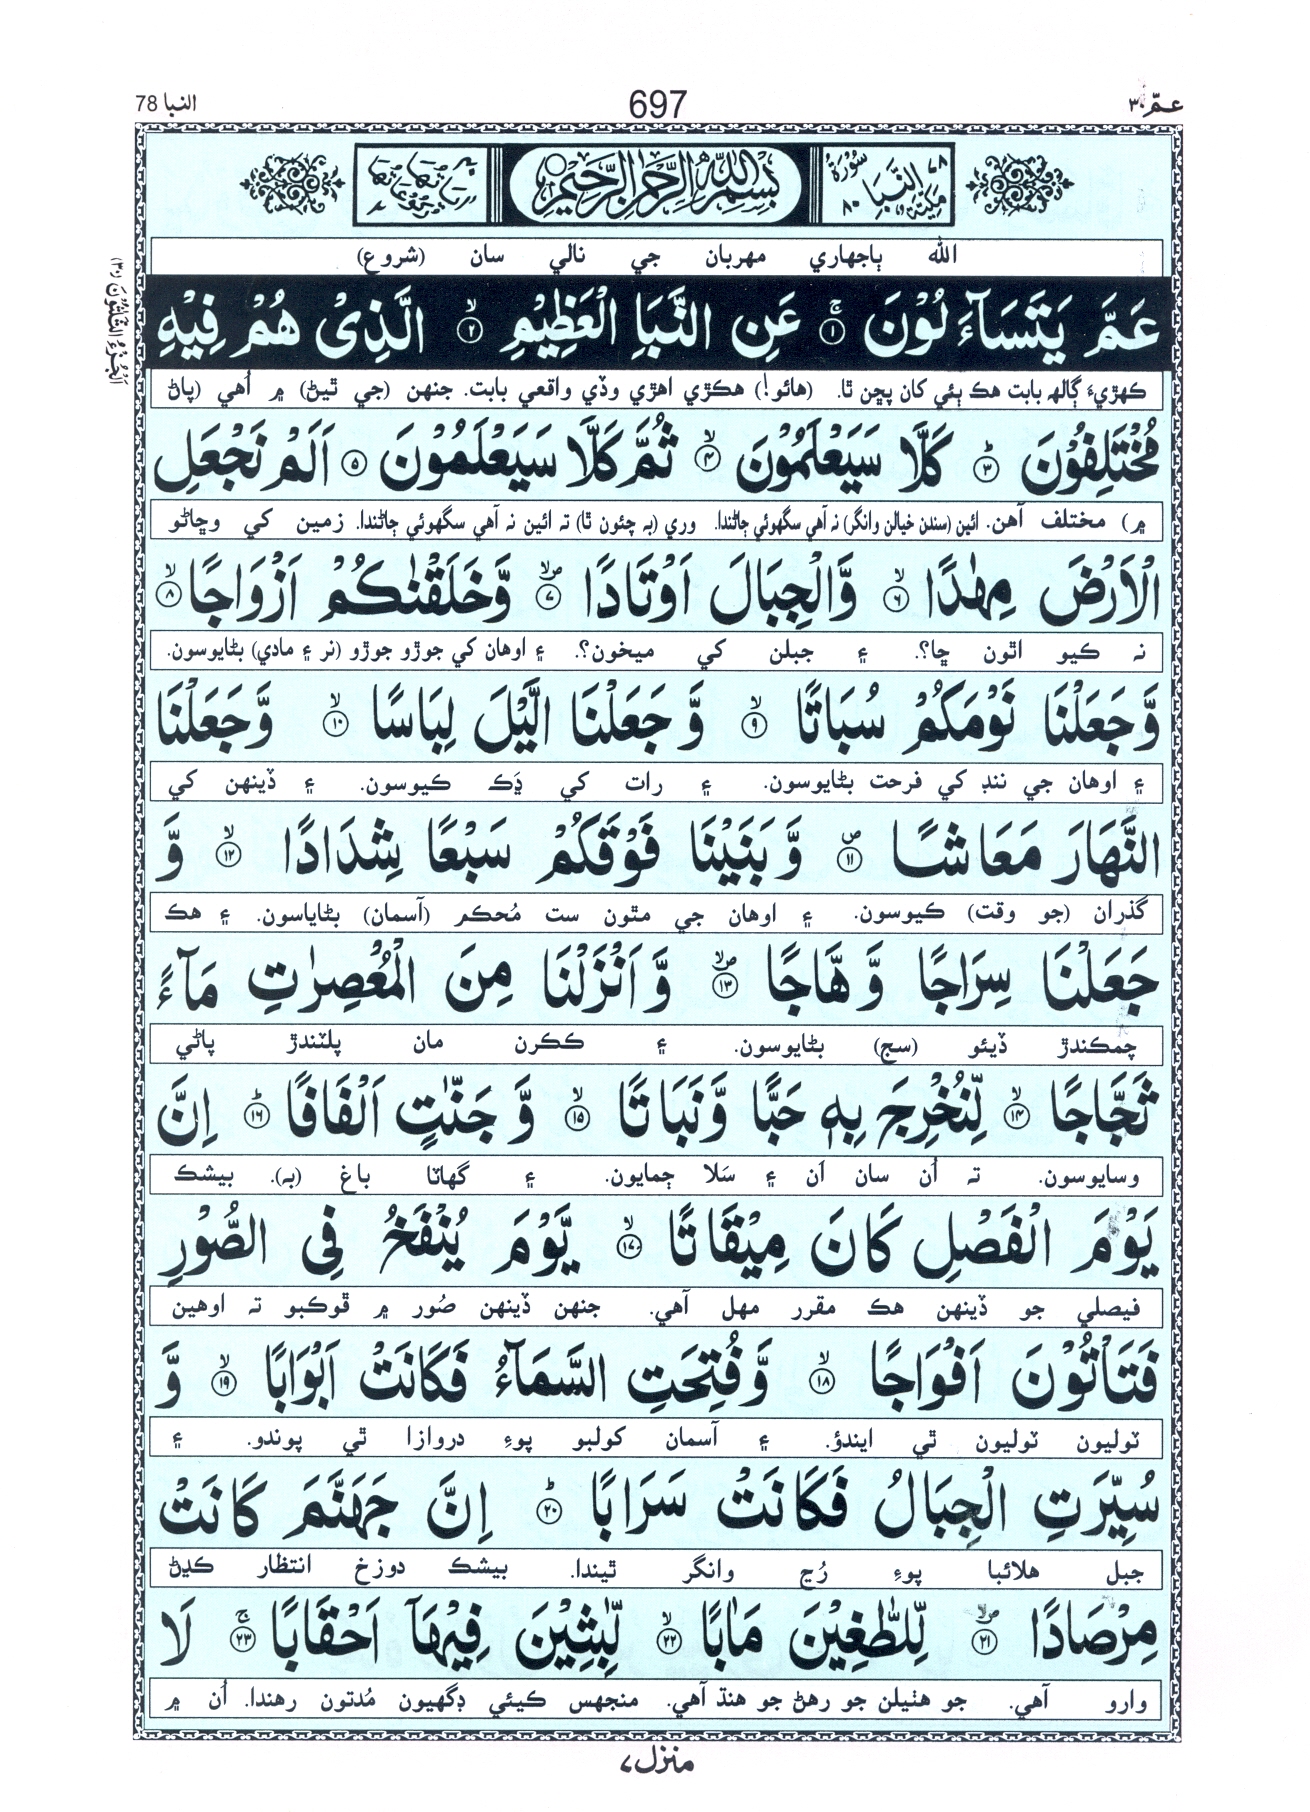 عمّ ٣٠
697
النبا 78
سُوْرَةُ النَّبَاِ مَكِّيَّةٌ
بِسْمِ اللّٰهِ الرَّحْمٰنِ الرَّحِيْمِ
اَلْجُزْءُ الثَّلٰثُوْنَ (٣٠)
الله ٻاجهاري مهربان جي نالي سان (شروع)
عَمَّ يَتَسَآءَلُوْنَ ۚ﴿١﴾ عَنِ النَّبَاِ الْعَظِيْمِ ۙ﴿٢﴾ الَّذِىْ هُمْ فِيْهِ
ڪهڙيءَ ڳالهه بابت هڪ ٻئي کان پڇن ٿا. (هائو!) هڪڙي اهڙي وڏي واقعي بابت. جنهن (جي ٿيڻ) ۾ اُهي (پاڻ
مُخْتَلِفُوْنَ ؕ﴿٣﴾ كَلَّا سَيَعْلَمُوْنَ ۙ﴿٤﴾ ثُمَّ كَلَّا سَيَعْلَمُوْنَ ﴿٥﴾ اَلَمْ نَجْعَلِ
۾) مختلف آهن. ائين (سندن خيالن وانگر) نہ آهي سگهوئي ڄاڻندا. وري (ٻہ چئون ٿا) تہ ائين نہ آهي سگهوئي ڄاڻندا. زمين کي وڇاڻو
الْاَرْضَ مِهٰدًا ۙ﴿٦﴾ وَّالْجِبَالَ اَوْتَادًا ۪ۙ﴿٧﴾ وَّخَلَقْنٰكُمْ اَزْوَاجًا ۙ﴿٨﴾
نہ ڪيو اٿون ڇا؟. ۽ جبلن کي ميخون؟. ۽ اوهان کي جوڙو جوڙو (نر ۽ مادي) بڻايوسون.
وَّجَعَلْنَا نَوْمَكُمْ سُبَاتًا ۙ﴿٩﴾ وَّجَعَلْنَا الَّيْلَ لِبَاسًا ۙ﴿١٠﴾ وَّجَعَلْنَا
۽ اوهان جي ننڊ کي فرحت بڻايوسون. ۽ رات کي ڍَڪ ڪيوسون. ۽ ڏينهن کي
النَّهَارَ مَعَاشًا ۪﴿١١﴾ وَّبَنَيْنَا فَوْقَكُمْ سَبْعًا شِدَادًا ۙ﴿١٢﴾ وَّ
گذران (جو وقت) ڪيوسون. ۽ اوهان جي مٿون ست مُحڪم (آسمان) بڻاياسون. ۽ هڪ
جَعَلْنَا سِرَاجًا وَّهَّاجًا ۪ۙ﴿١٣﴾ وَّاَنْزَلْنَا مِنَ الْمُعْصِرٰتِ مَآءً
چمڪندڙ ڏيئو (سج) بڻايوسون. ۽ ڪڪرن مان پلٽندڙ پاڻي
ثَجَّاجًا ۙ﴿١٤﴾ لِّنُخْرِجَ بِهٖ حَبًّا وَّنَبَاتًا ۙ﴿١٥﴾ وَّجَنّٰتٍ اَلْفَافًا ؕ﴿١٦﴾ اِنَّ
وسايوسون. تہ اُن سان اَن ۽ سَلا ڄمايون. ۽ گهاٽا باغ (بہ). بيشڪ
يَوْمَ الْفَصْلِ كَانَ مِيْقَاتًا ۙ﴿١٧﴾ يَّوْمَ يُنْفَخُ فِى الصُّوْرِ
فيصلي جو ڏينهن هڪ مقرر مهل آهي. جنهن ڏينهن صُور ۾ ڦوڪبو تہ اوهين
فَتَاْتُوْنَ اَفْوَاجًا ۙ﴿١٨﴾ وَّفُتِحَتِ السَّمَآءُ فَكَانَتْ اَبْوَابًا ۙ﴿١٩﴾ وَّ
ٽوليون ٽوليون ٿي ايندؤ. ۽ آسمان کولبو پوءِ دروازا ٿي پوندو. ۽
سُيِّرَتِ الْجِبَالُ فَكَانَتْ سَرَابًا ؕ﴿٢٠﴾ اِنَّ جَهَنَّمَ كَانَتْ
جبل هلائبا پوءِ رُڃ وانگر ٿيندا. بيشڪ دوزخ انتظار ڪيڻ
مِرْصَادًا ۪ۙ﴿٢١﴾ لِّلطّٰغِيْنَ مَاٰبًا ۙ﴿٢٢﴾ لّٰبِثِيْنَ فِيْهَآ اَحْقَابًا ۚ﴿٢٣﴾ لَا
وارو آهي. جو هٺيلن جو رهڻ جو هنڌ آهي. منجهس ڪيئي ڊگهيون مُدتون رهندا. اُن ۾
منزل ٧